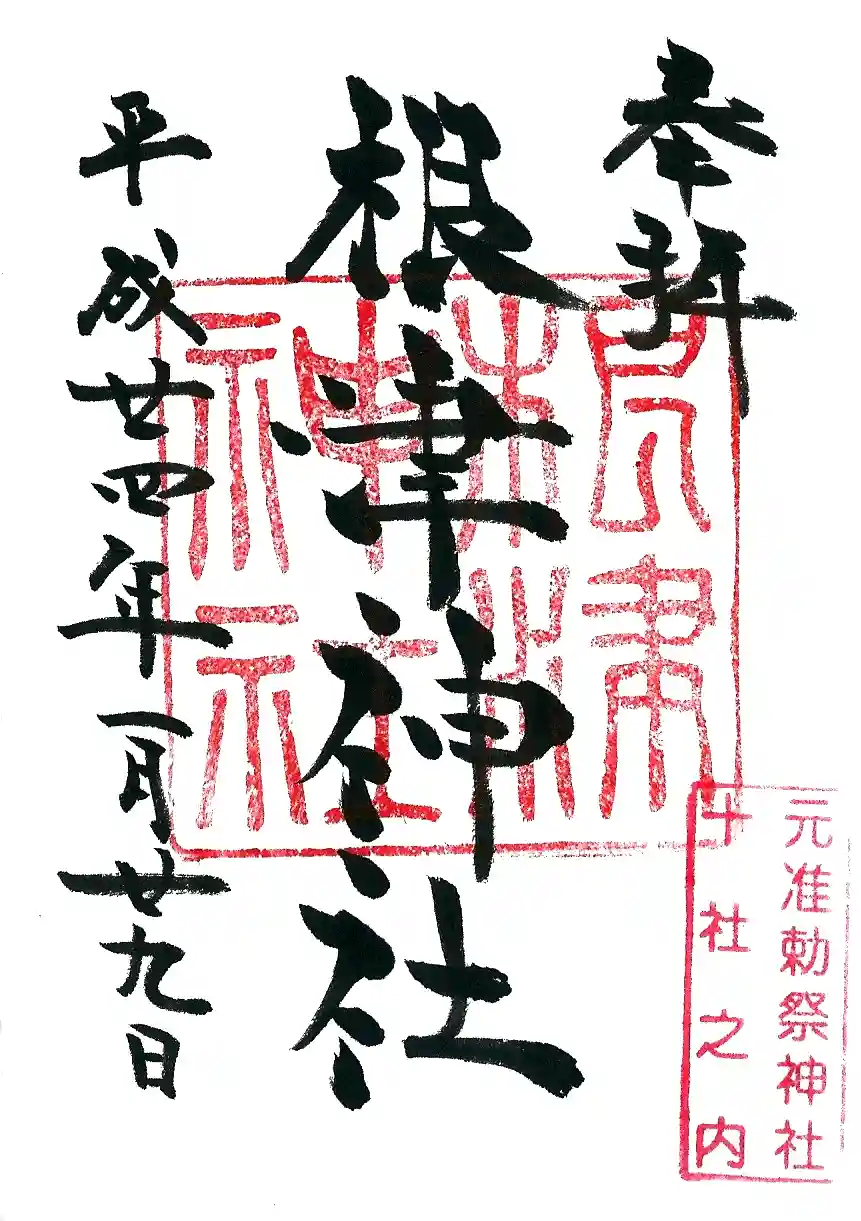 奉拝
根津神社
平成廿四年一月廿九日
元准勅祭神社
十社之内